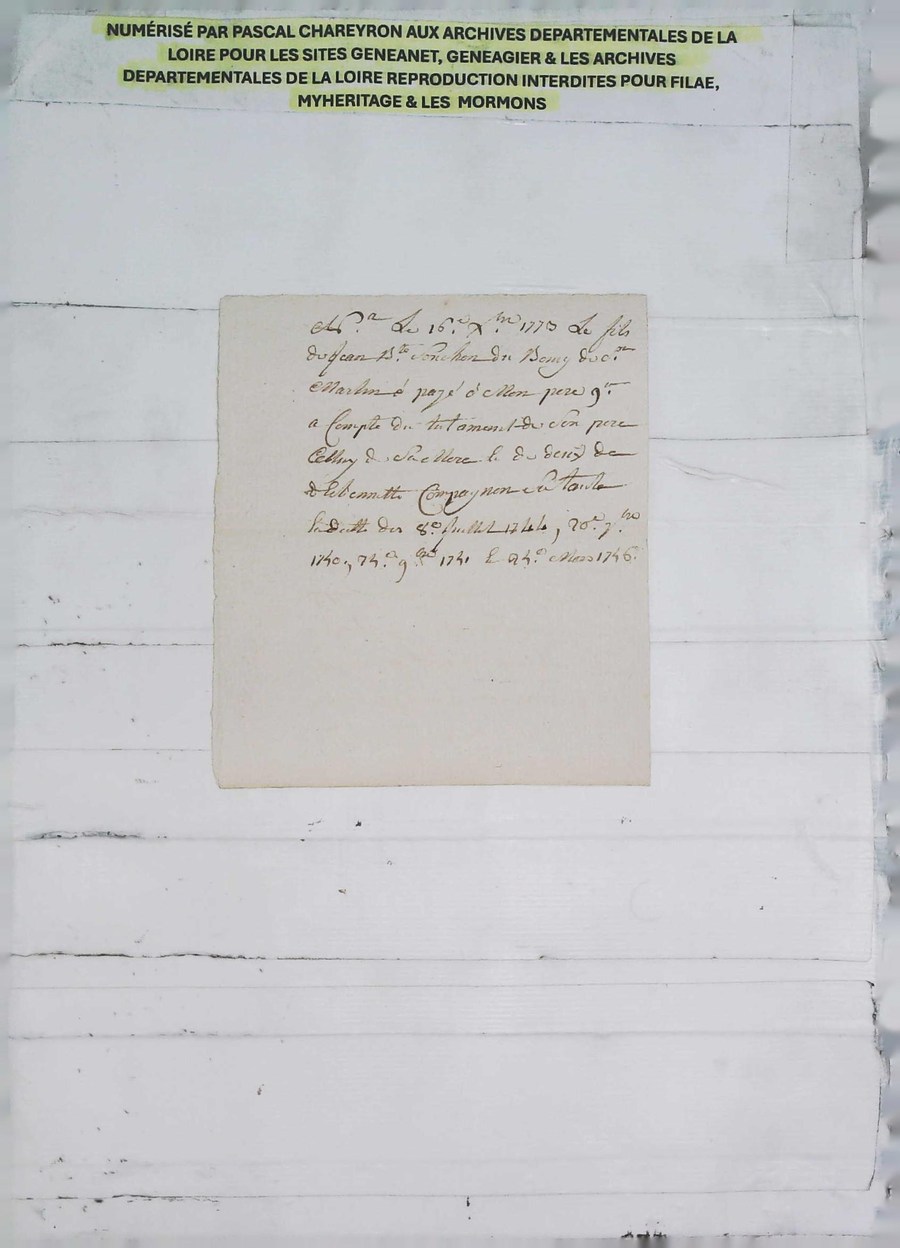 NUMÉRISÉ PAR PASCAL CHAREYRON AUX ARCHIVES DEPARTEMENTALES DE LA
LOIRE POUR LES SITES GENEANET, GENEAGIER & LES ARCHIVES
DEPARTEMENTALES DE LA LOIRE REPRODUCTION INTERDITES POUR FILAE,
MYHERITAGE & LES MORMONS
Le 16.e X.bre 1773 Le fils
de Jean B.te du Bourg de
Martin á payé á Mon pere 9
a Compte du testament de Son pere
Celluy de Sa Mere & de deux de
Compagnon Sa tante
dette des 8.e Juillet 1744, 20.e 7.bre
1740, 9.bre 1741 & 24.e Mars 1746.